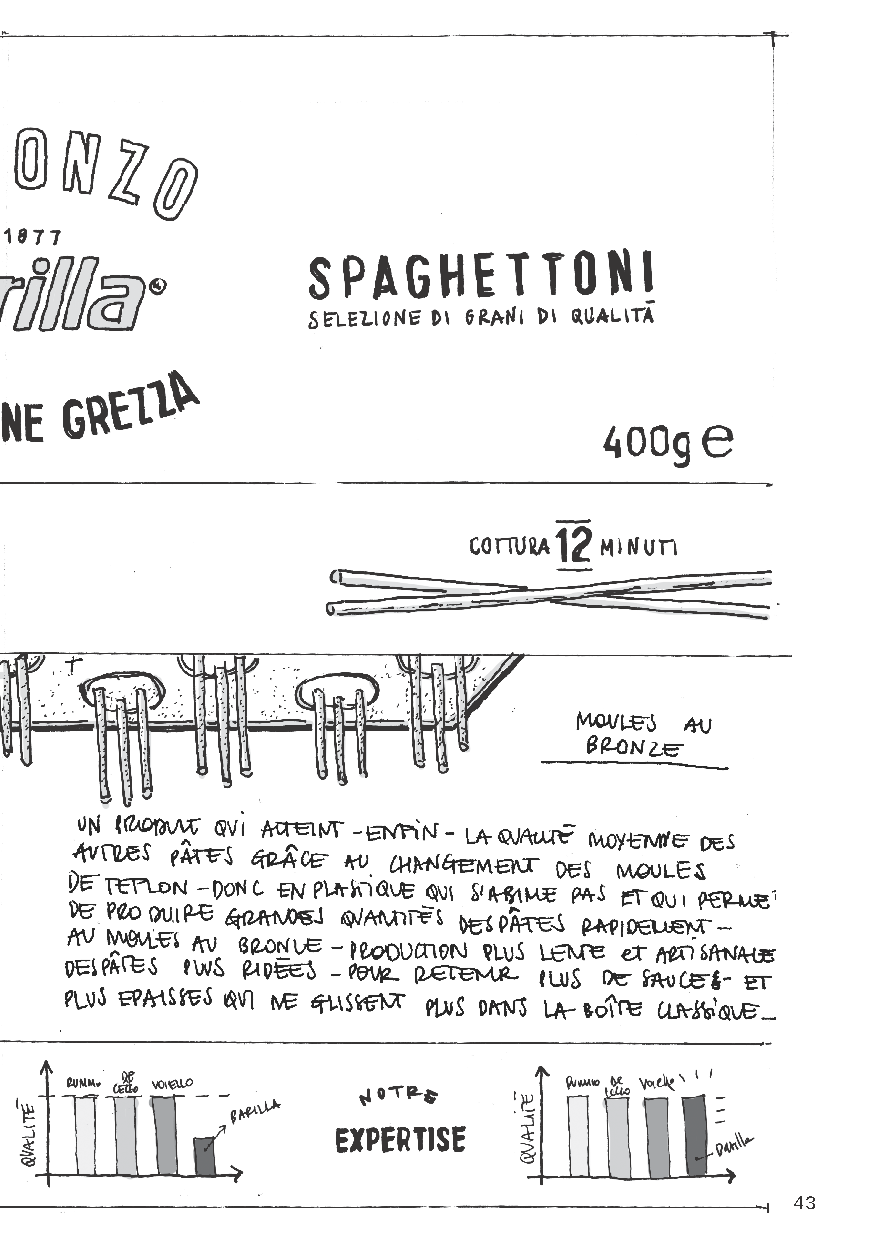 ONZO
1877
rilla®
SPAGHETTONI
SELEZIONE DI GRANI DI QUALITÀ
NE GREZZA
400g e
COTTURA 12 MINUTI
MOULES AU
BRONZE
UN PRODUIT QUI ATTEINT - ENFIN - LA QUALITÉ MOYENNE DES
AUTRES PÂTES GRÂCE AU CHANGEMENT DES MOULES
DE TEFLON - DONC EN PLASTIQUE QUI S'ABIME PAS ET QUI PERMET
DE PRODUIRE GRANDES QUANTITÉS DES PÂTES RAPIDEMENT -
AU MOULES AU BRONZE - PRODUCTION PLUS LENTE et ARTISANALE
DES PÂTES PLUS RIDÉES - POUR RETENIR PLUS DE SAUCES - ET
PLUS EPAISSES QUI NE GLISSENT PLUS DANS LA BOÎTE CLASSIQUE_
QUALITÉ
RUMMO
DE
CECCO
VOIELLO
BARILLA
NOTRE
EXPERTISE
QUALITÉ
RUMMO
DE
CECCO
Voiello
Barilla
43